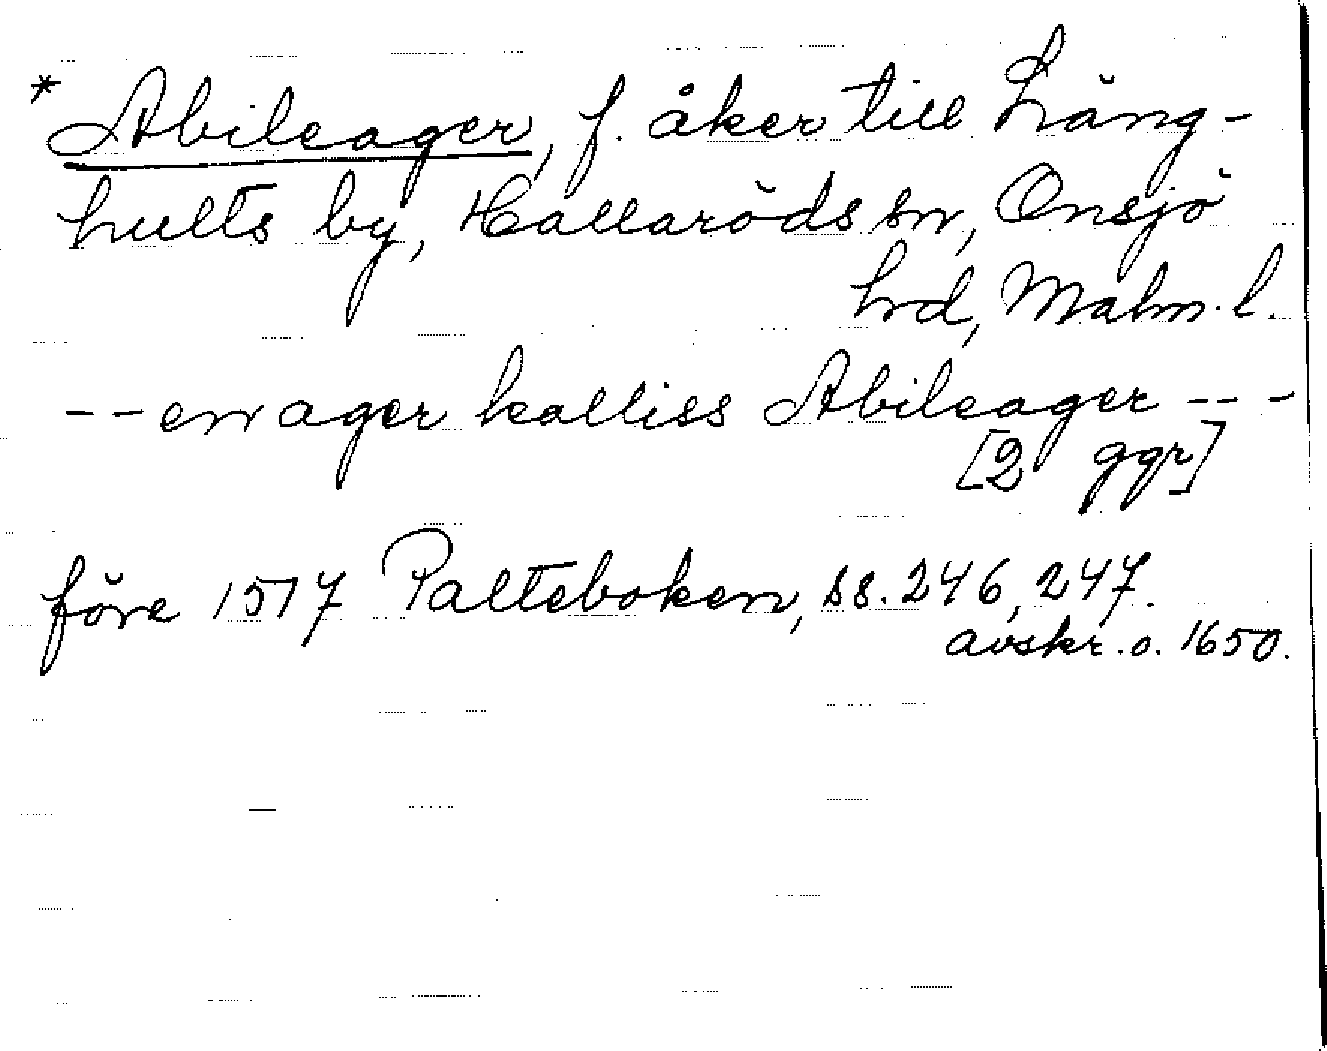 * Abileager, f. åker till Lång-
hults by, Hallaröds sn, Onsjö
hrd, Malm. l.
-- en ager kalliss Abileager ---
[2 ggr]
före 1517 Palteboken, ss. 246, 247.
avskr. o. 1650.